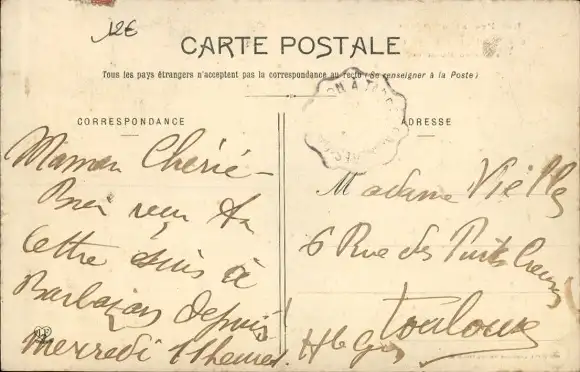 12€
CARTE POSTALE
Tous les pays étrangers n'acceptent pas la correspondance au recto (Se renseigner à la Poste)
CORRESPONDANCE
Maman Chérie –
Bien reçu ta
lettre suis à
Barbazan depuis
Mercredi 11 heures.
ADRESSE
Madame Vielle
6 Rue des Puits Creusés
Toulouse
Hte Gne